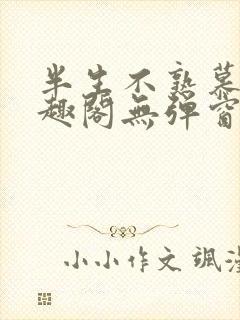 半生不熟慕
趣阁無弹窗
小小作文飒漫